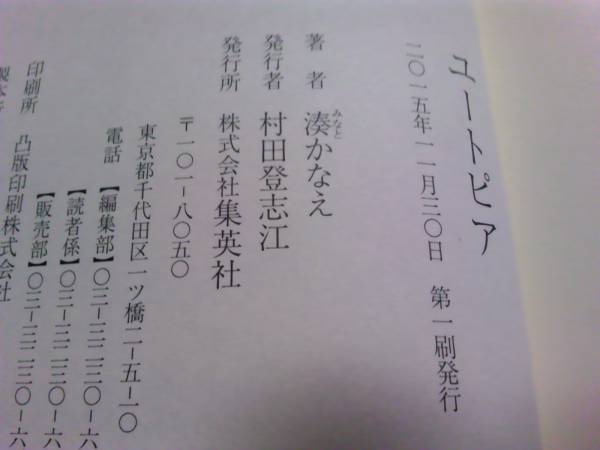 ユートピア
二〇一五年一一月三〇日　第一刷発行
著　者　湊かなえ
発行者　村田登志江
発行所　株式会社集英社
〒一〇一-八〇五〇
東京都千代田区一ツ橋二-五-一〇
電話　【編集部】〇三-三二三〇-六
【読者係】〇三-三二三〇-六
【販売部】〇三-三二三〇-六
印刷所　凸版印刷株式会社